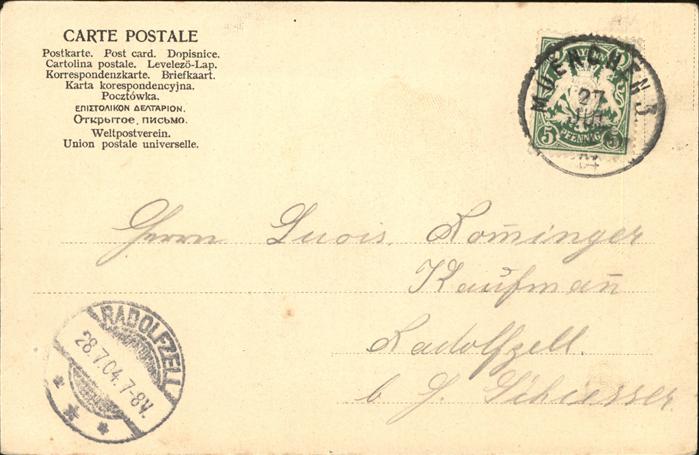 CARTE POSTALE
Postkarte. Post card. Dopisnice.
Cartolina postale. Levelező-Lap.
Korrespondenzkarte. Briefkaart.
Karta korespondencyjna.
Pocztówka.
ΕΠΙΣΤΟΛΙΚΟΝ ΔΕΛΤΑΡΙΟΝ.
Открытое, письмо.
Weltpostverein.
Union postale universelle.
MUENCHEN 3
27
JUL
5 PFENNIG 5
Herrn Luois. Kominger
Kaufman̄
Radolfzell.
b. J. Schiesser
RADOLFZELL
28.7.04.7-8V.